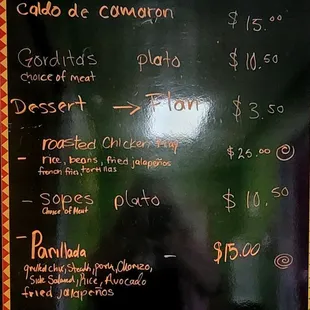 Caldo de camaron $15.00
Gorditas plato $10.50
choice of meat
Dessert → Flan $3.50
- roasted Chicken $25.00
rice, beans, fried jalapeños
french fries, tortillas
- Sopes plato $10.50
Choice of Meat
- Parrillada - $15.00
grilled chic, Steak, pork, Chorizo,
Side Salad, Rice, Avocado
fried jalapeños